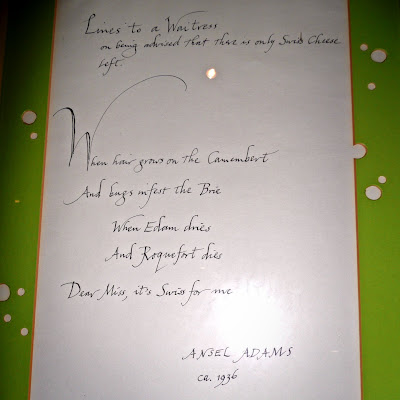 Lines to a Waitress
on being advised that there is only Swiss Cheese
left.
When hair grows on the Camembert
And bugs infest the Brie
When Edam dries
And Roquefort dies
Dear Miss, it's Swiss for me
ANSEL ADAMS
ca. 1936